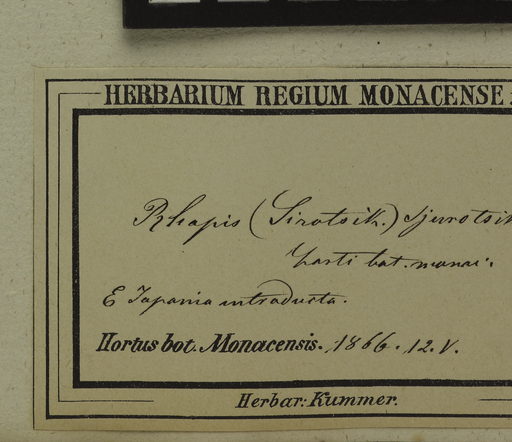 HERBARIUM REGIUM MONACENSE
Rhapis (Sirotsik.) Sjurotsik
horti bot. monac.
E Japonia introducta.
Hortus bot. Monacensis. 1866. 12. V.
Herbar: Kummer.